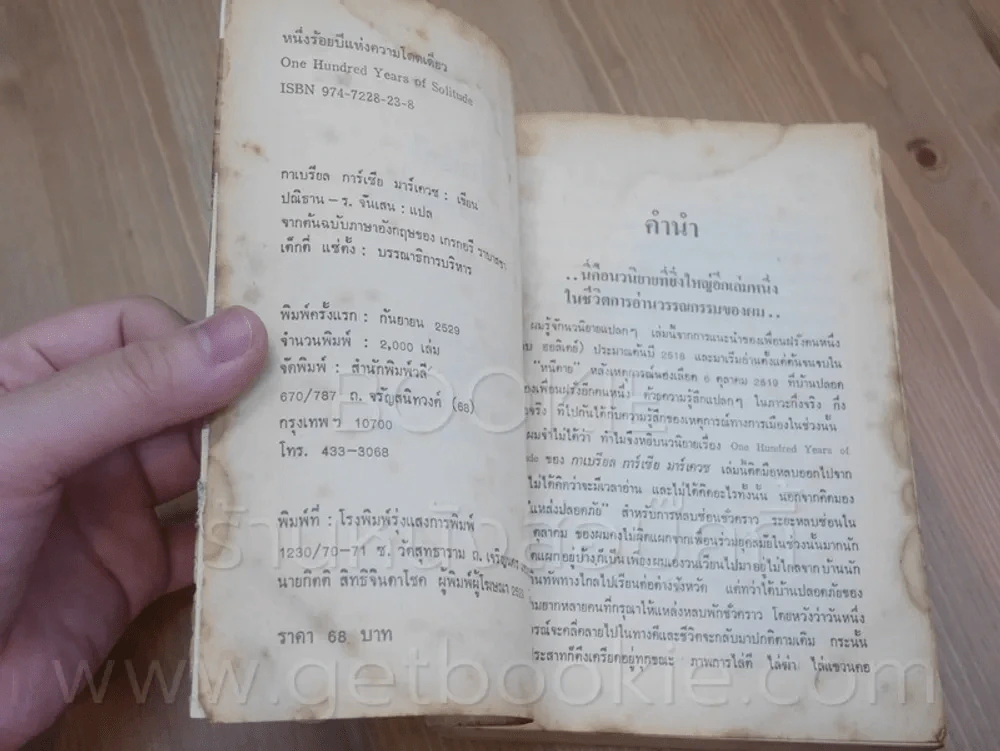 หนึ่งร้อยปีแห่งความโดดเดี่ยว
One Hundred Years of Solitude
ISBN 974-7228-23-8
กาเบรียล การ์เซีย มาร์เควซ : เขียน
ปณิธาน – ร. จันเสน : แปล
จากต้นฉบับภาษาอังกฤษของ เกรกอรี ราบาซซา
เด็กดี แซ่ตั้ง : บรรณาธิการบริหาร
พิมพ์ครั้งแรก : กันยายน 2529
จำนวนพิมพ์ : 2,000 เล่ม
จัดพิมพ์ : สำนักพิมพ์วลี
670/787 ถ. จรัญสนิทวงศ์ (68)
กรุงเทพฯ 10700
โทร. 433-3068
พิมพ์ที่ : โรงพิมพ์รุ่งแสงการพิมพ์
1230/70–71 ซ. วัดสุทธาราม ถ. เจริญนคร
นายกิตติ สิทธิจินดาโชค ผู้พิมพ์ผู้โฆษณา 2529
ราคา 68 บาท
คำนำ
..นี่คือนวนิยายที่ยิ่งใหญ่อีกเล่มหนึ่ง
ในชีวิตการอ่านวรรณกรรมของผม..
ผมรู้จักนวนิยายแปลกๆ เล่มนี้จากการแนะนำของเพื่อนฝรั่งคนหนึ่ง
ฮอลิเดย์) ประมาณต้นปี 2518 และมาเริ่มอ่านตั้งแต่ต้นจนจบใน
"หนีตาย" หลังเหตุการณ์นองเลือด 6 ตุลาคม 2519 ที่บ้านปลอด
เพื่อนฝรั่งอีกคนหนึ่ง) ด้วยความรู้สึกแปลกๆ ในภาวะกึ่งจริง กึ่ง
จริง ที่ไปกันได้กับความรู้สึกของเหตุการณ์ทางการเมืองในช่วงนั้น
ผมจำไม่ได้ว่า ทำไมจึงหยิบนวนิยายเรื่อง One Hundred Years of
ของ กาเบรียล การ์เซีย มาร์เควซ เล่มนี้ติดมือหลบออกไปจาก
ไม่ได้คิดว่าจะมีเวลาอ่าน และไม่ได้คิดอะไรทั้งนั้น นอกจากคิดมอง
แหล่งปลอดภัย" สำหรับการหลบซ่อนชั่วคราว ระยะหลบซ่อนใน
ตุลาคม ของผมคงไม่ผิดแผกจากเพื่อนร่วมยุคสมัยในช่วงนั้นมากนัก
แผกอยู่บ้างก็เป็นเพียงผมเองวนเวียนไปมาอยู่ไม่ไกลจากบ้านนัก
ทางไกลไปเรียนต่อต่างจังหวัด แต่ทว่าได้บ้านปลอดภัยของ
ยากหลายคนที่กรุณาให้แหล่งหลบพักชั่วคราว โดยหวังว่าวันหนึ่ง
จะคลี่คลายไปในทางดีและชีวิตจะกลับมาปกติตามเดิม กระนั้น
ประสาทก็ตึงเครียดอยู่ทุกขณะ ภาพการไล่ตี ไล่ฆ่า ไล่แขวนคอ
BOOKIE
ร้านหนังสือบุ๊คกี้
www.getbookie.com